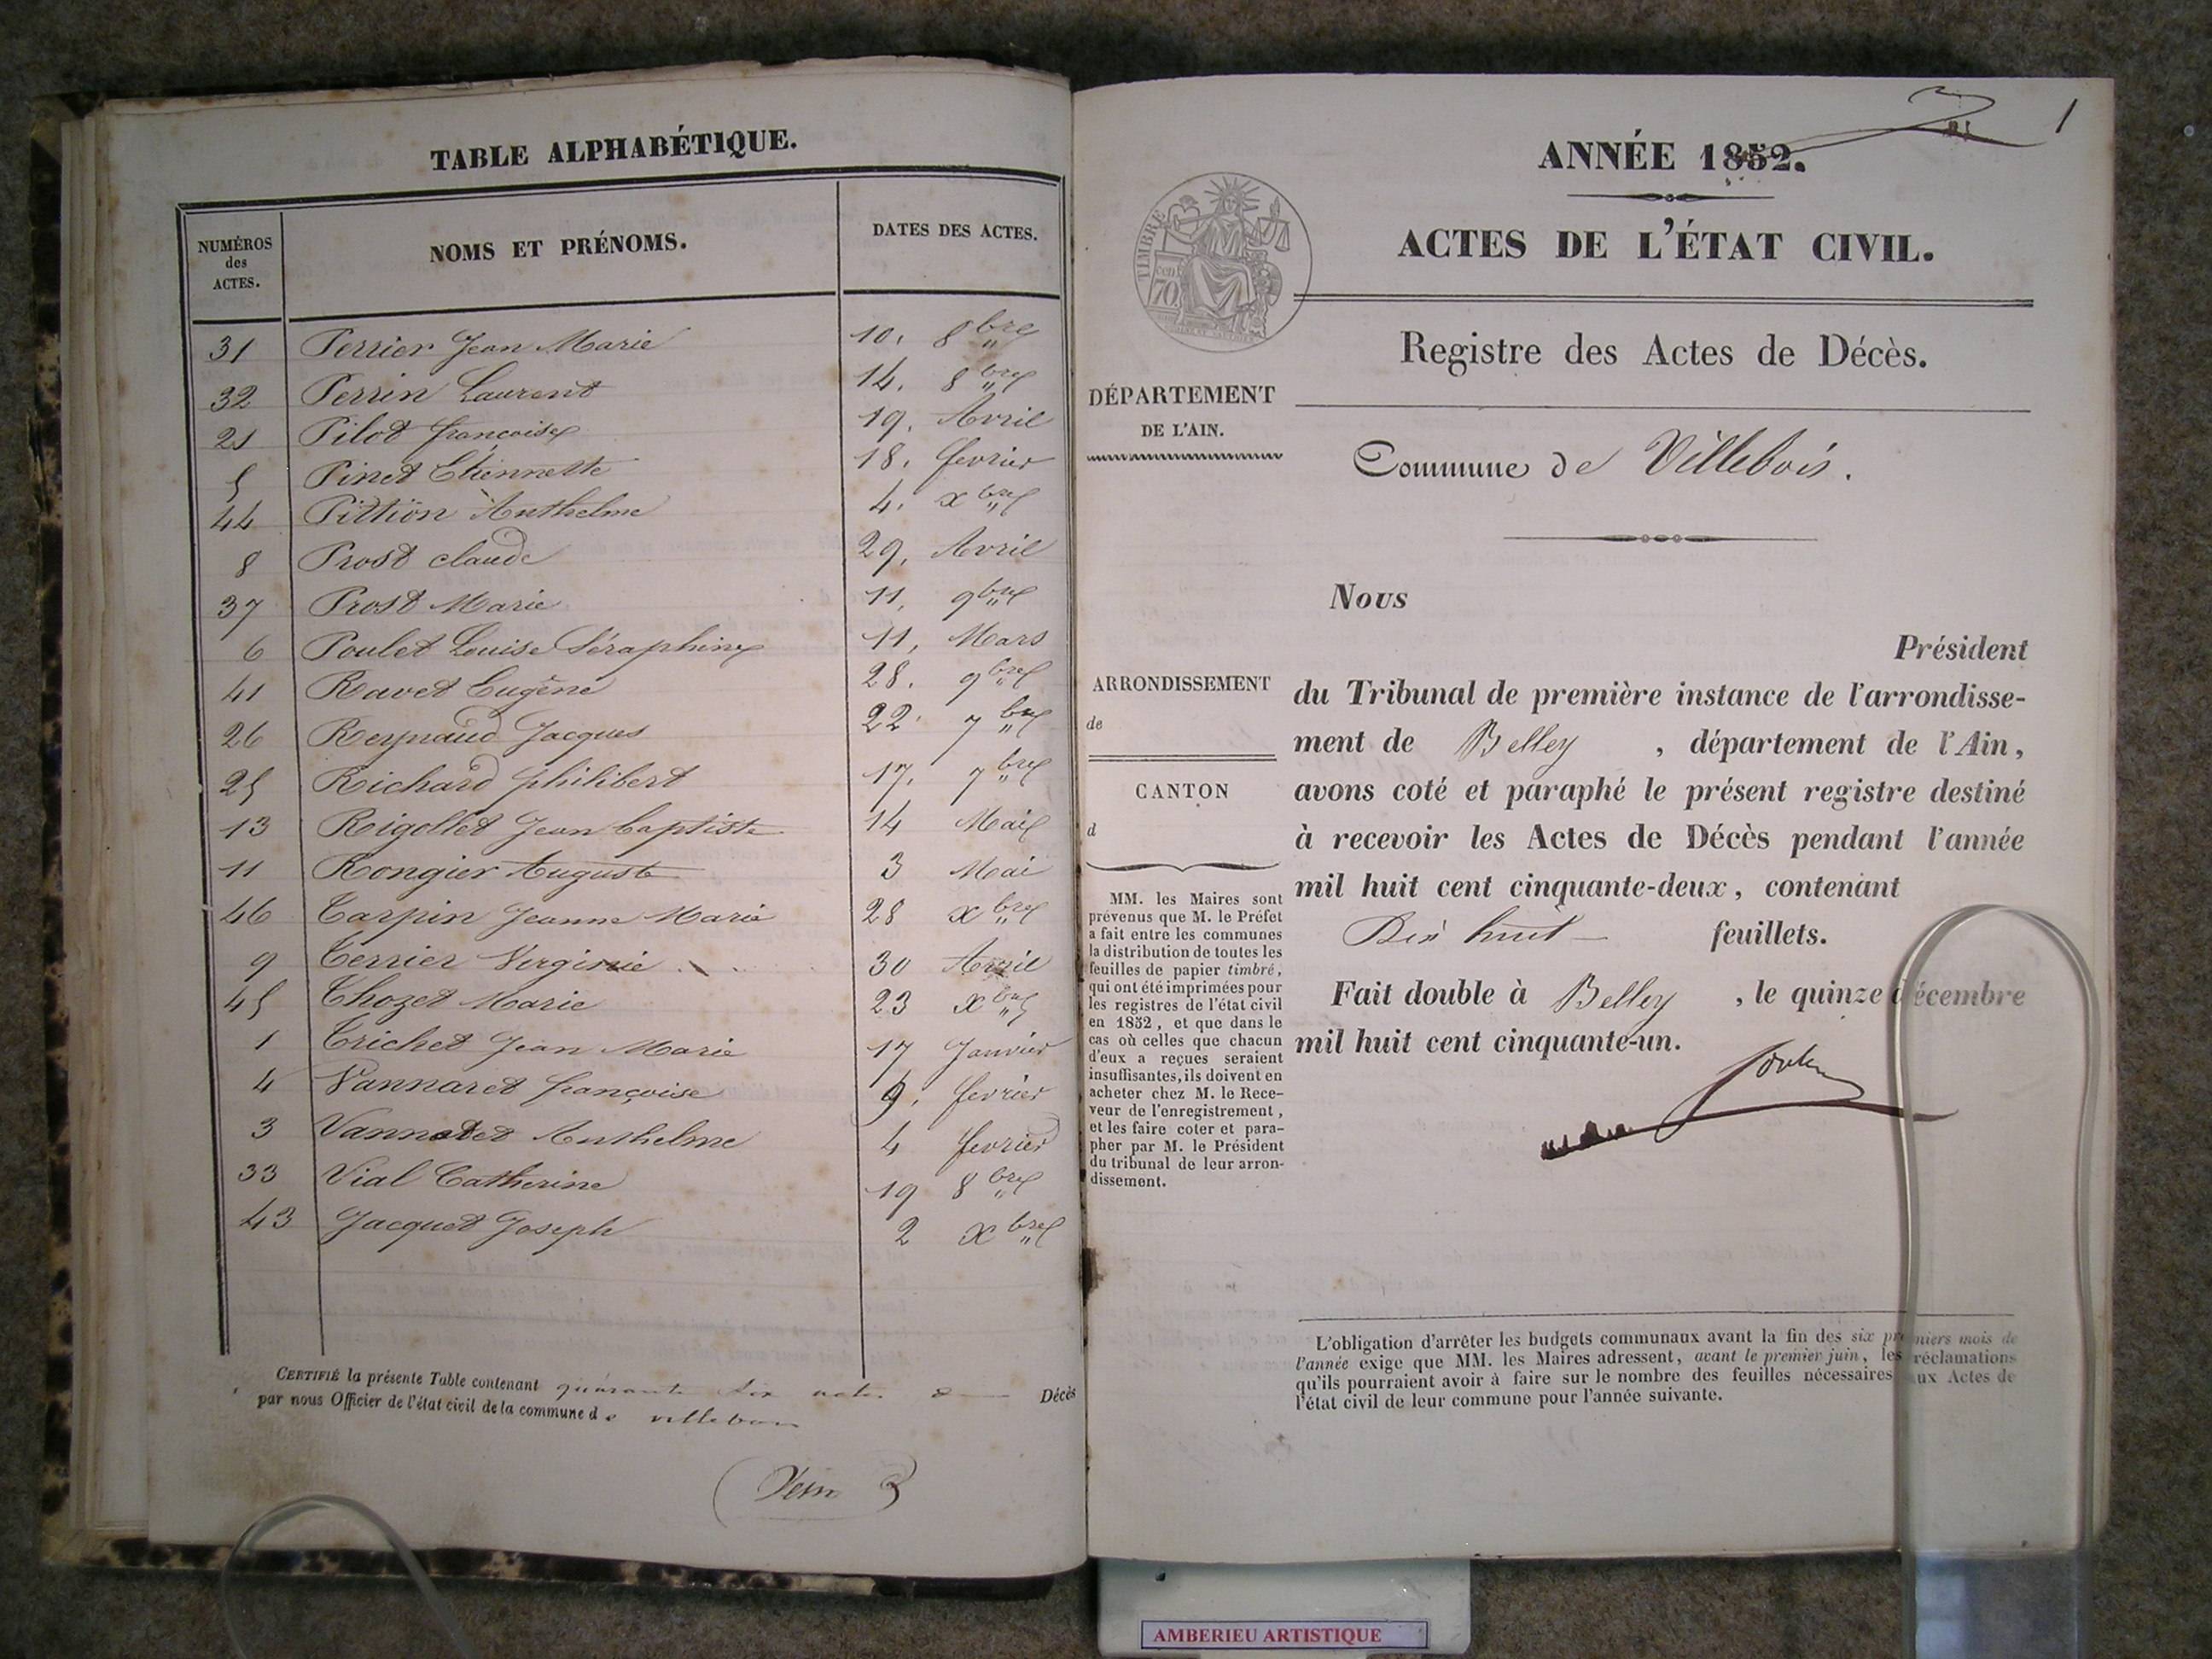 TABLE ALPHABÉTIQUE.
NUMÉROS des ACTES. NOMS ET PRÉNOMS. DATES DES ACTES.
31 Perrier Jean Marie 10, 8bre
32 Perrin Laurent 14, 8bre
21 Pilot françoise 19, Avril
5 Pinet Etiennette 18, fevrier
44 Pittion Anthelme 4, xbre
8 Prost claude 29, Avril
37 Prost Marie 11, 9bre
6 Poulet Louise Séraphine 11, Mars
41 Ravet Eugène 28. 9bre
26 Reynaud Jacques 22 7bre
25 Richard philibert 17, 7bre
13 Rigollet Jean baptiste 14 Mai
11 Rongier Auguste 3 Mai
46 Tarpin Jeanne Marie 28 xbre
9 Terrier Virginie 30 Avril
45 Thozet Marie 23 xbre
1 Trichet Jean Marie 17 Janvier
4 Vannaret françoise 9, fevrier
3 Vannaret Anthelme 4 fevrier
33 Vial Catherine 19 8bre
43 Jacquet Joseph 2 xbre
CERTIFIÉ la présente Table contenant quarante six actes de Décès
par nous Officier de l'état civil de la commune de villebois
1
ANNÉE 1852.
ACTES DE L'ÉTAT CIVIL.
TIMBRE
cent
70
Registre des Actes de Décès.
DÉPARTEMENT
DE L'AIN.
Commune de Villebois.
Nous
Président
ARRONDISSEMENT
de
CANTON
d
du Tribunal de première instance de l'arrondisse-
ment de Belley , département de l'Ain,
avons coté et paraphé le présent registre destiné
à recevoir les Actes de Décès pendant l'année
mil huit cent cinquante-deux, contenant
Dix huit feuillets.
Fait double à Belley , le quinze décembre
mil huit cent cinquante-un.
MM. les Maires sont
prévenus que M. le Préfet
a fait entre les communes
la distribution de toutes les
feuilles de papier timbré,
qui ont été imprimées pour
les registres de l'état civil
en 1852, et que dans le
cas où celles que chacun
d'eux a reçues seraient
insuffisantes, ils doivent en
acheter chez M. le Rece-
veur de l'enregistrement,
et les faire coter et para-
pher par M. le Président
du tribunal de leur arron-
dissement.
L'obligation d'arrêter les budgets communaux avant la fin des six premiers mois de
l'année exige que MM. les Maires adressent, avant le premier juin, les réclamations
qu'ils pourraient avoir à faire sur le nombre des feuilles nécessaires aux Actes de
l'état civil de leur commune pour l'année suivante.
AMBERIEU ARTISTIQUE